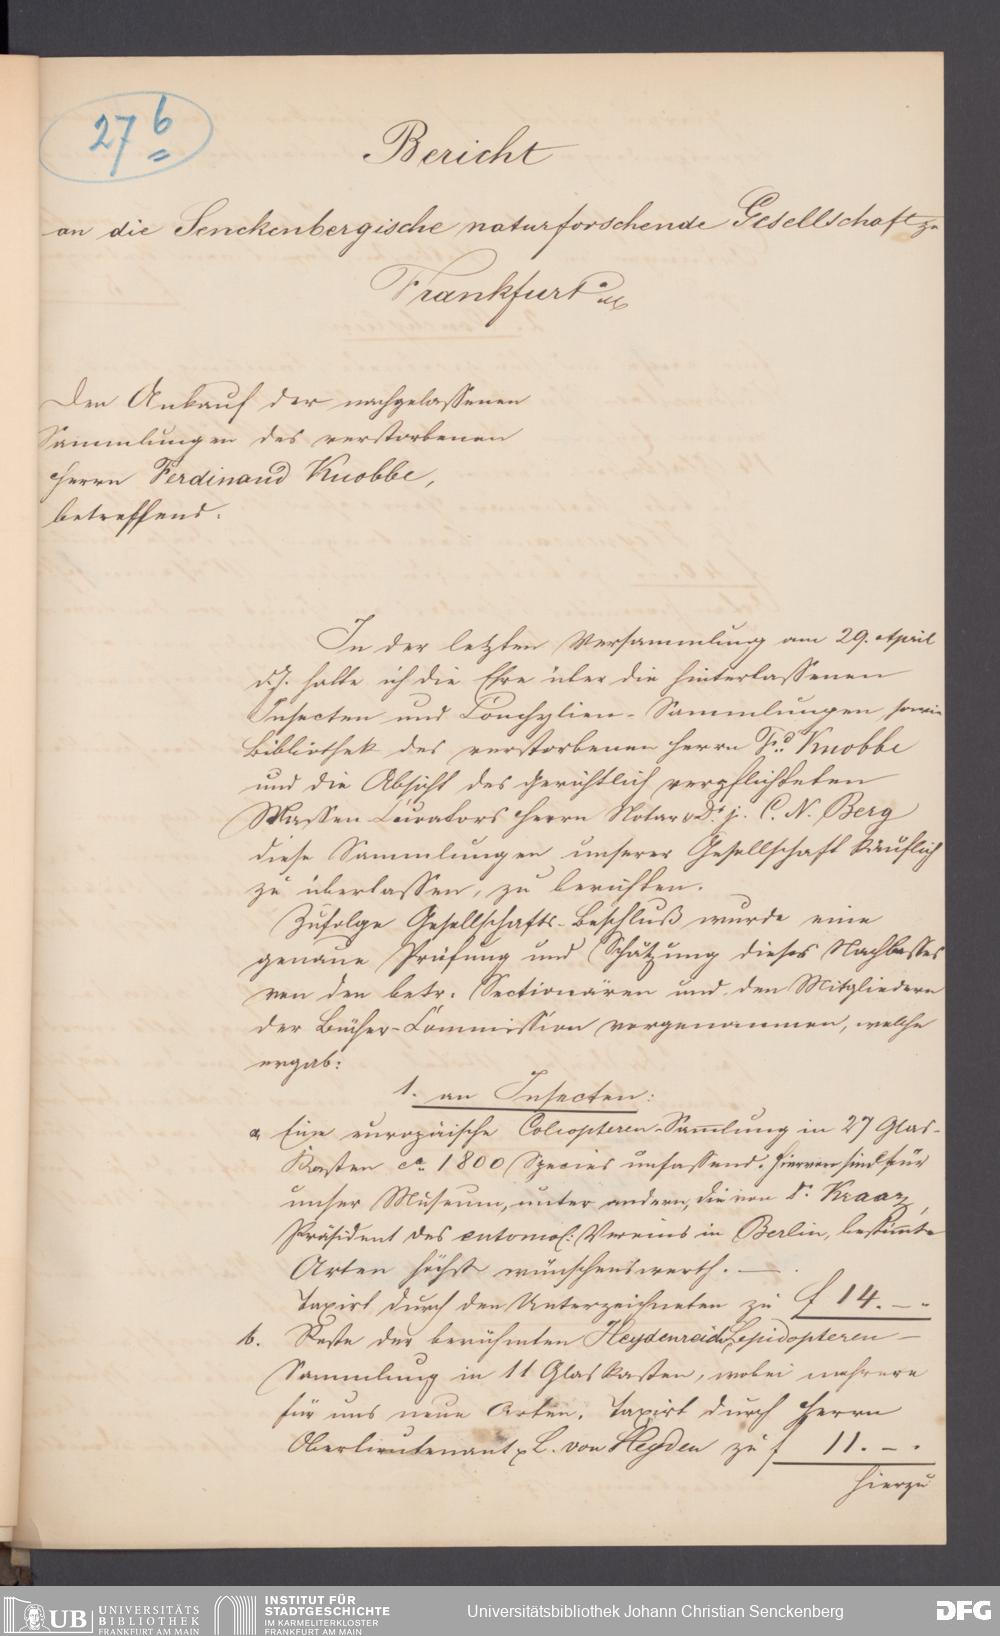 27 b
Bericht
an die Senckenbergische naturforschende Gesellschaft zu
Frankfurt a/M
Den Ankauf der nachgelassenen
Sammlungen des verstorbenen
Herrn Ferdinand Knobbe,
betreffend.
In der letzten Versammlung am 29. April
d. J. hatte ich die Ehre über die hinterlassenen
Insecten und Conchylien-Sammlungen, sowie
Bibliothek des verstorbenen Herrn Fd. Knobbe
und die Absicht des gerichtlich verpflichteten
Massen Curators Herrn Notar Dr. j. C. N. Berg
diese Sammlungen unserer Gesellschaft käuflich
zu überlassen, zu berichten.
Zufolge Gesellschafts-Beschluß wurde eine
genaue Prüfung und Schätzung dieses Nachlasses
von den betr. Sectionären und den Mitgliedern
der Bücher-Commission vorgenommen, welche
ergab:
1. an Insecten:
a. Eine europäische Coleopteren-Sammlung in 27 Glas-
Kasten ca. 1800 Species umfassend. Hiervon sind für
unser Museum, unter andern, die von Dr. Kraaz,
Präsident des entomol: Vereins in Berlin, bestimmte
Arten höchst wünschenswerth. —
Taxirt durch den Unterzeichneten zu f 14. — "
b. Reste der berühmten Heydenreich Lepidopteren-
Sammlung in 11 Glaskasten, wobei mehrere
für uns neue Arten. Taxirt durch Herrn
Oberlieutenant L. von Heyden zu f 11. — .
hierzu
UB UNIVERSITÄTS
BIBLIOTHEK
FRANKFURT AM MAIN
INSTITUT FÜR
STADTGESCHICHTE
IM KARMELITERKLOSTER
FRANKFURT AM MAIN
Universitätsbibliothek Johann Christian Senckenberg
DFG